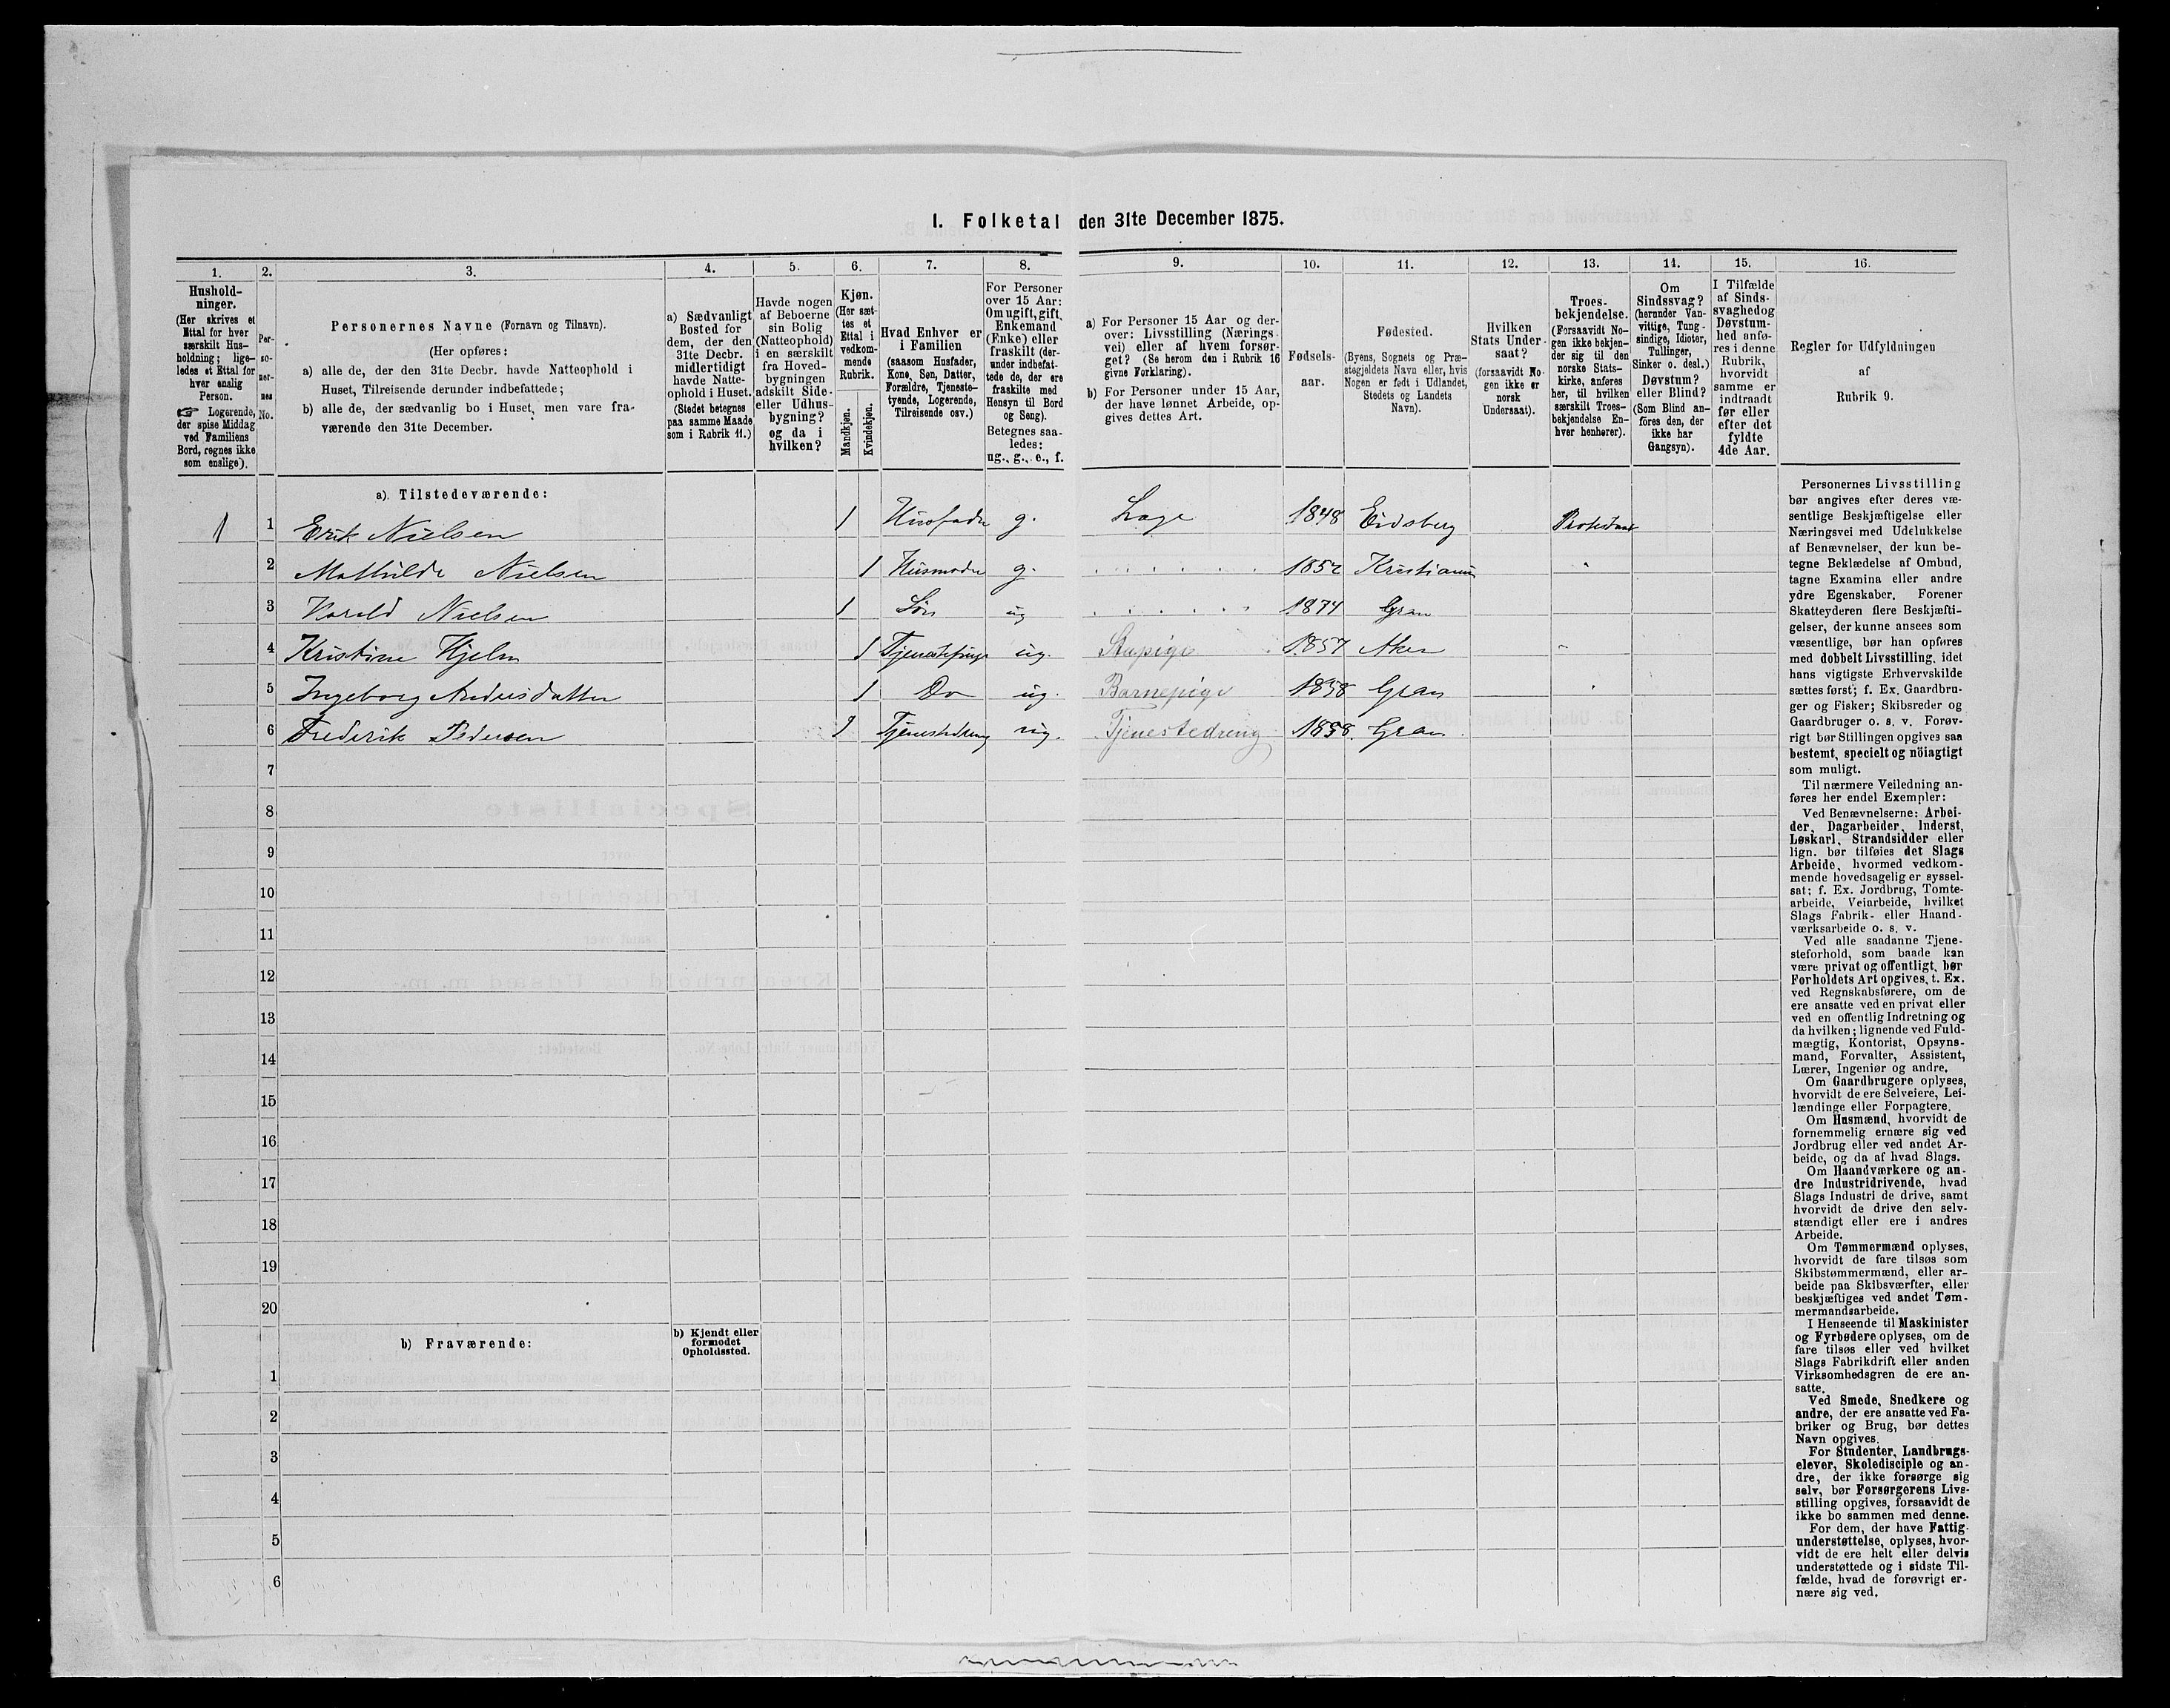 1. Folketal den 31te December 1875.
1.
2.
3.
4.
5.
6.
7.
8.
9.
10.
11.
12.
13.
14.
15.
16.
Hushold-
ninger.
(Her skrives et
Ettal for hver
særskilt Hus-
holdning; lige-
ledes et Ettal for
hver enslig
Person.
☞ Logerende,
der spise Middag
ved Familiens
Bord, regnes ikke
som enslige).
Per-
so-
ner-
nes
No.
Personernes Navne (Fornavn og Tilnavn).
(Her opføres:
a) alle de, der den 31te Decbr. havde Natteophold i
Huset, Tilreisende derunder indbefattede;
b) alle de, der sædvanlig bo i Huset, men vare fra-
værende den 31te December.
a) Sædvanligt
Bosted for
dem, der den
31te Decbr.
midlertidigt
havde Natte-
ophold i Huset.
(Stedet betegnes
paa samme Maade
som i Rubrik 11.)
Havde nogen
af Beboerne
sin Bolig
(Natteophold)
i en særskilt
fra Hoved-
bygningen
adskilt Side-
eller Udhus-
bygning?
og da i
hvilken?
Kjøn.
(Her sæt-
tes et
Ettal i
vedkom-
mende
Rubrik.
Mandkjøn.
Kvindekjøn.
Hvad Enhver er
i Familien
(saasom Husfader,
Kone, Søn, Datter,
Forældre, Tjeneste-
tyende, Logerende,
Tilreisende osv.)
For Personer
over 15 Aar:
Om ugift, gift,
Enkemand
(Enke) eller
fraskilt (der-
under indbefat-
tede de, der ere
fraskilte med
Hensyn til Bord
og Seng).
Betegnes saa-
ledes:
ug., g., e., f.
a) For Personer 15 Aar og der-
over: Livsstilling (Nærings-
vei) eller af hvem forsør-
get? (Se herom den i Rubrik 16
givne Forklaring).
b) For Personer under 15 Aar,
der have lønnet Arbeide, op-
gives dettes Art.
Fødsels-
aar.
Fødested.
(Byens, Sognets og Præ-
stegjeldets Navn eller, hvis
Nogen er født i Udlandet,
Stedets og Landets
Navn).
Hvilken
Stats Under-
saat?
(forsaavidt No-
gen ikke er
norsk
Undersaat).
Troes-
bekjendelse.
(Forsaavidt No-
gen ikke bekjen-
der sig til den
norske Stats-
kirke, anføres
her, til hvilken
særskilt Troes-
bekjendelse En-
hver henhører).
Om
Sindssvag?
(herunder Van-
vittige, Tung-
sindige, Idioter,
Tullinger,
Sinker o. desl.)
Døvstum?
eller Blind?
(Som Blind an-
føres den, der
ikke har
Gangsyn).
I Tilfælde
af Sinds-
svaghed og
Døvstum-
hed anfø-
res i denne
Rubrik,
hvorvidt
samme er
indtraadt
før eller
efter det
fyldte
4de Aar.
Regler for Udfyldningen
af
Rubrik 9.
a) Tilstedeværende:
1 1 Erik Nielsen 1 Husfader g. Læge 1848 Eidsberg Protestant
2 Mathilde Nielsen 1 Husmoder g. 1852 Kristiania "
3 Harald Nielsen 1 Søn ug 1874 Gran
4 Kristine Hjelm 1 Tjenestepige ug. Stupige 1857 Aker "
5 Ingeborg Andersdatter 1 Do ug. Barnepige 1858 Gran "
6 Frederik Pedersen 1 Tjenestedreng ug. Tjenestedreng 1858. Gran
7
8
9
10
11
12
13
14
15
16
17
18
19
20
b) Fraværende:
b) Kjendt eller
formodet
Opholdssted.
1
2
3
4
5
6
Personernes Livsstilling
bør angives efter deres væ-
sentlige Beskjæftigelse eller
Næringsvei med Udelukkelse
af Benævnelser, der kun be-
tegne Beklædelse af Ombud,
tagne Examina eller andre
ydre Egenskaber. Forener
Skatteyderen flere Beskjæfti-
gelser, der kunne ansees som
væsentlige, bør han opføres
med dobbelt Livsstilling, idet
hans vigtigste Erhvervskilde
sættes først; f. Ex. Gaardbru-
ger og Fisker; Skibsreder og
Gaardbruger o. s. v. Forøv-
rigt bør Stillingen opgives saa
bestemt, specielt og nöiagtigt
som muligt.
Til nærmere Veiledning an-
føres her endel Exempler:
Ved Benævnelserne: Arbei-
der, Dagarbeider, Inderst,
Løskarl, Strandsidder eller
lign. bør tilføies det Slags
Arbeide, hvormed vedkom-
mende hovedsagelig er syssel-
sat; f. Ex. Jordbrug, Tomte-
arbeide, Veiarbeide, hvilket
Slags Fabrik- eller Haand-
værksarbeide o. s. v.
Ved alle saadanne Tjene-
steforhold, som baade kan
være privat og offentligt, bør
Forholdets Art opgives, t. Ex.
ved Regnskabsførere, om de
ere ansatte ved en privat eller
ved en offentlig Indretning og
da hvilken; lignende ved Fuld-
mægtig, Kontorist, Opsyns-
mand, Forvalter, Assistent,
Lærer, Ingeniør og andre.
Om Gaardbrugere oplyses,
hvorvidt de ere Selveiere, Lei-
lændinge eller Forpagtere.
Om Husmænd, hvorvidt de
fornemmelig ernære sig ved
Jordbrug eller ved andet Ar-
beide, og da af hvad Slags.
Om Haandværkere og an-
dre Industridrivende, hvad
Slags Industri de drive, samt
hvorvidt de drive den selv-
stændigt eller ere i andres
Arbeide.
Om Tømmermænd oplyses,
hvorvidt de fare tilsøs som
Skibstømmermænd, eller ar-
beide paa Skibsværfter, eller
beskjæftiges ved andet Tøm-
mermandsarbeide.
I Henseende til Maskinister
og Fyrbødere oplyses, om de
fare tilsøs eller ved hvilket
Slags Fabrikdrift eller anden
Virksomhedsgren de ere an-
satte.
Ved Smede, Snedkere og
andre, der ere ansatte ved Fa-
briker og Brug, bør dettes
Navn opgives.
For Studenter, Landbrugs-
elever, Skoledisciple og an-
dre, der ikke forsørge sig
selv, bør Forsørgerens Livs-
stilling opgives, forsaavidt de
ikke bo sammen med denne.
For dem, der have Fattig-
understøttelse, oplyses, hvor-
vidt de ere helt eller delvis
understøttede og i sidste Til-
fælde, hvad de forøvrigt er-
nære sig ved.